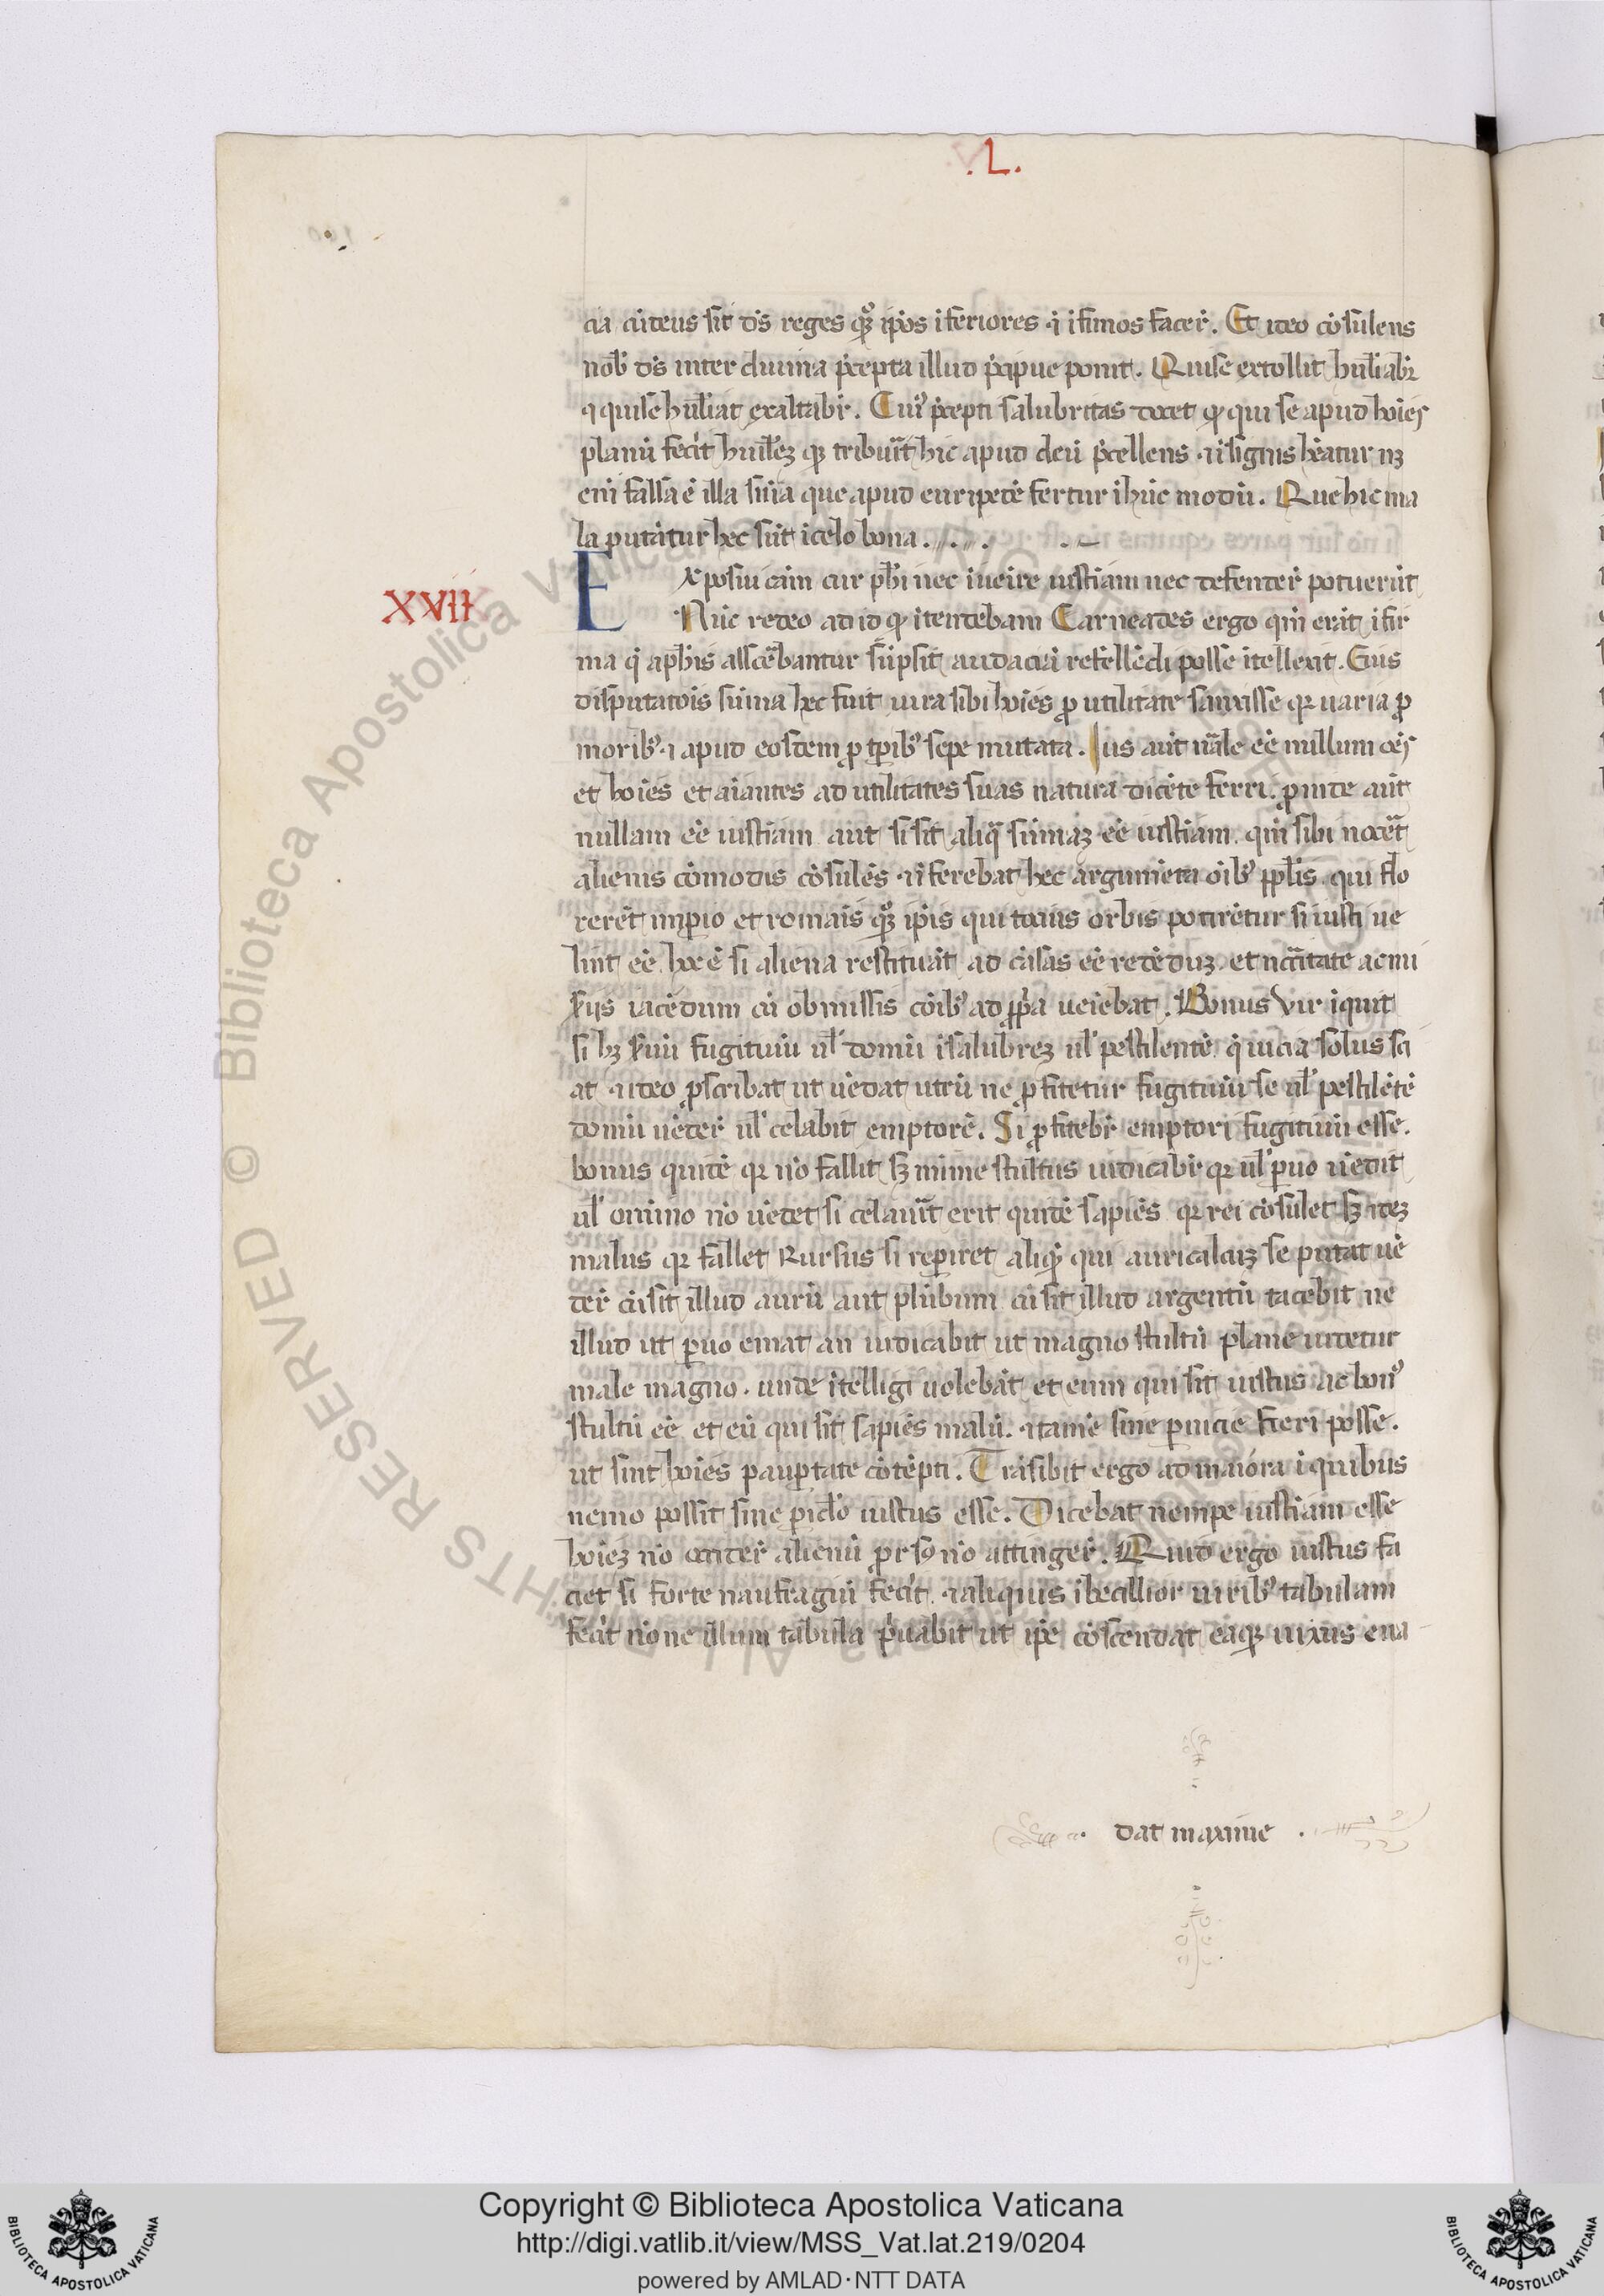 .L.
cia cū deus sit dn̄s reges quoqꝫ ip̄os īferiores ⁊ īfimos facēt. Et ideo cōsulens
nob̄ dn̄s inter diuina p̄cepta illud p̄cipue ponit. Qui se extollit hūliabr̄
⁊ qui se hūliat exaltabr̄. Cuiꝰ p̄cepti salubritas docet ꝙ qui se apud hoīes
planū fecīt huīlēꝫ qꝫ tribuīt hic apud deū p̄cellens ⁊ īsignis hēatur nꝫ
enī falsa ē illa snīa que apud euripedē fertur ī hūc modū. Que hic ma
la putātur hec sūt ī celo bona.
XVII
Exposui cām cur ph̄i nec īueīre iustiam nec defenderē potuerūt
Nūc redeo ad id ꝙ ītendebam Carneades ergo qm̄ erāt īfir
ma q̄ a ph̄is asserēbantur sūpsit audaciā refellēdi posse ītellexit. Eius
disputatōis sūma hec fuit iura sibi hoīes ꝓ utilitate sanxisse qꝫ uaria ꝓ
moribꝰ ⁊ apud eosdem ꝓ tp̄ibꝰ sepe mutata. Ius aūt nāle eē nullum oēs
et hoīes et aīantes ad utilitates suas natura dicēte ferri. ꝓinde aūt
nullam eē iustiam aut si sit aliq̄ sūmaꝫ eē iustiam. qm̄ sibi nocēt
alienis cōmodis cōsulēs ⁊ īferebat hec argumēta oībꝰ ppl̄is qui flo
rerēt imp̄io et romaīs quoqꝫ ip̄is qui totius orbis potirētur si iusti ue
lint eē. hoc ē si aliena restituāt ad casas eē redēduꝫ. et nc̄citate ac mi
s̄ijs iacēdum cū obmissis cōibꝰ ad ꝓp̄a ueīebat. Bonus Vir īquit
si hꝫ s̄uū fugitiuū ul̄ domū īsalubreꝫ ul̄ pestilentē. q̄ uicia solus sci
at ⁊ ideo ꝓscribat ut uēdat utrū ne ꝓfitetur fugitiuū se ul̄ pestilētē
domū uēderē ul̄ celabit emptorē. Si ꝓfitebr̄ emptori fugitiuū esse.
bonus quidē qꝫ nō fallit sꝫ mīme stultus iudicabr̄ qꝫ ul̄ ꝑuo uēdit
ul̄ omīno nō uēdet si celauīt erit quidē sapiēs qꝫ rei cōsulet sꝫ ideꝫ
malus qꝫ fallet Rursus si reꝑiret aliqꝫ qui auricalcuꝫ se putat uē
derē cū sit illud aurū aut plūbum cū sit illud argentū tacebit ne
illud ut ꝑuo emat an iudicabit ut magno stultū plane uidetur
male magno. unde ītelligi uolebāt et eum qui sit iustus ac bonꝰ
stultū eē et eū qui sit sapiēs malū. ⁊ tamē sine ꝑnicie fieri posse.
ut sint hoīes pauꝑtate cōtēpti. Trāsibit ergo ad maiora ī quibus
nemo possit sine ꝑicl̄o iustus esse. Dicebat nempe iustiam esse
hoīeꝫ nō occiderē alienū ꝓrsꝰ nō attingerē. Quid ergo iustus fa
ciet si forte naufragiū fecīt. ⁊ aliquis ībecillior uiribꝰ tabulam
fecīt nōne illum tabula p̄uabit ut ip̄e cōscendat eaqꝫ nixus eua
dat maxime
Copyright © Biblioteca Apostolica Vaticana
http://digi.vatlib.it/view/MSS_Vat.lat.219/0204
powered by AMLAD·NTT DATA